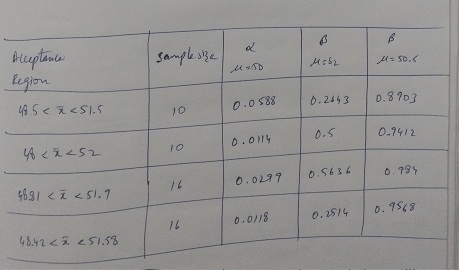 Acceptance Region sample size α μ=50 β μ=52 β μ=50.5
48.5 < x̄ < 51.5 10 0.0588 0.2643 0.8903
48 < x̄ < 52 10 0.0114 0.5 0.9412
48.81 < x̄ < 51.9 16 0.0299 0.5636 0.984
48.42 < x̄ < 51.58 16 0.0118 0.2514 0.9568